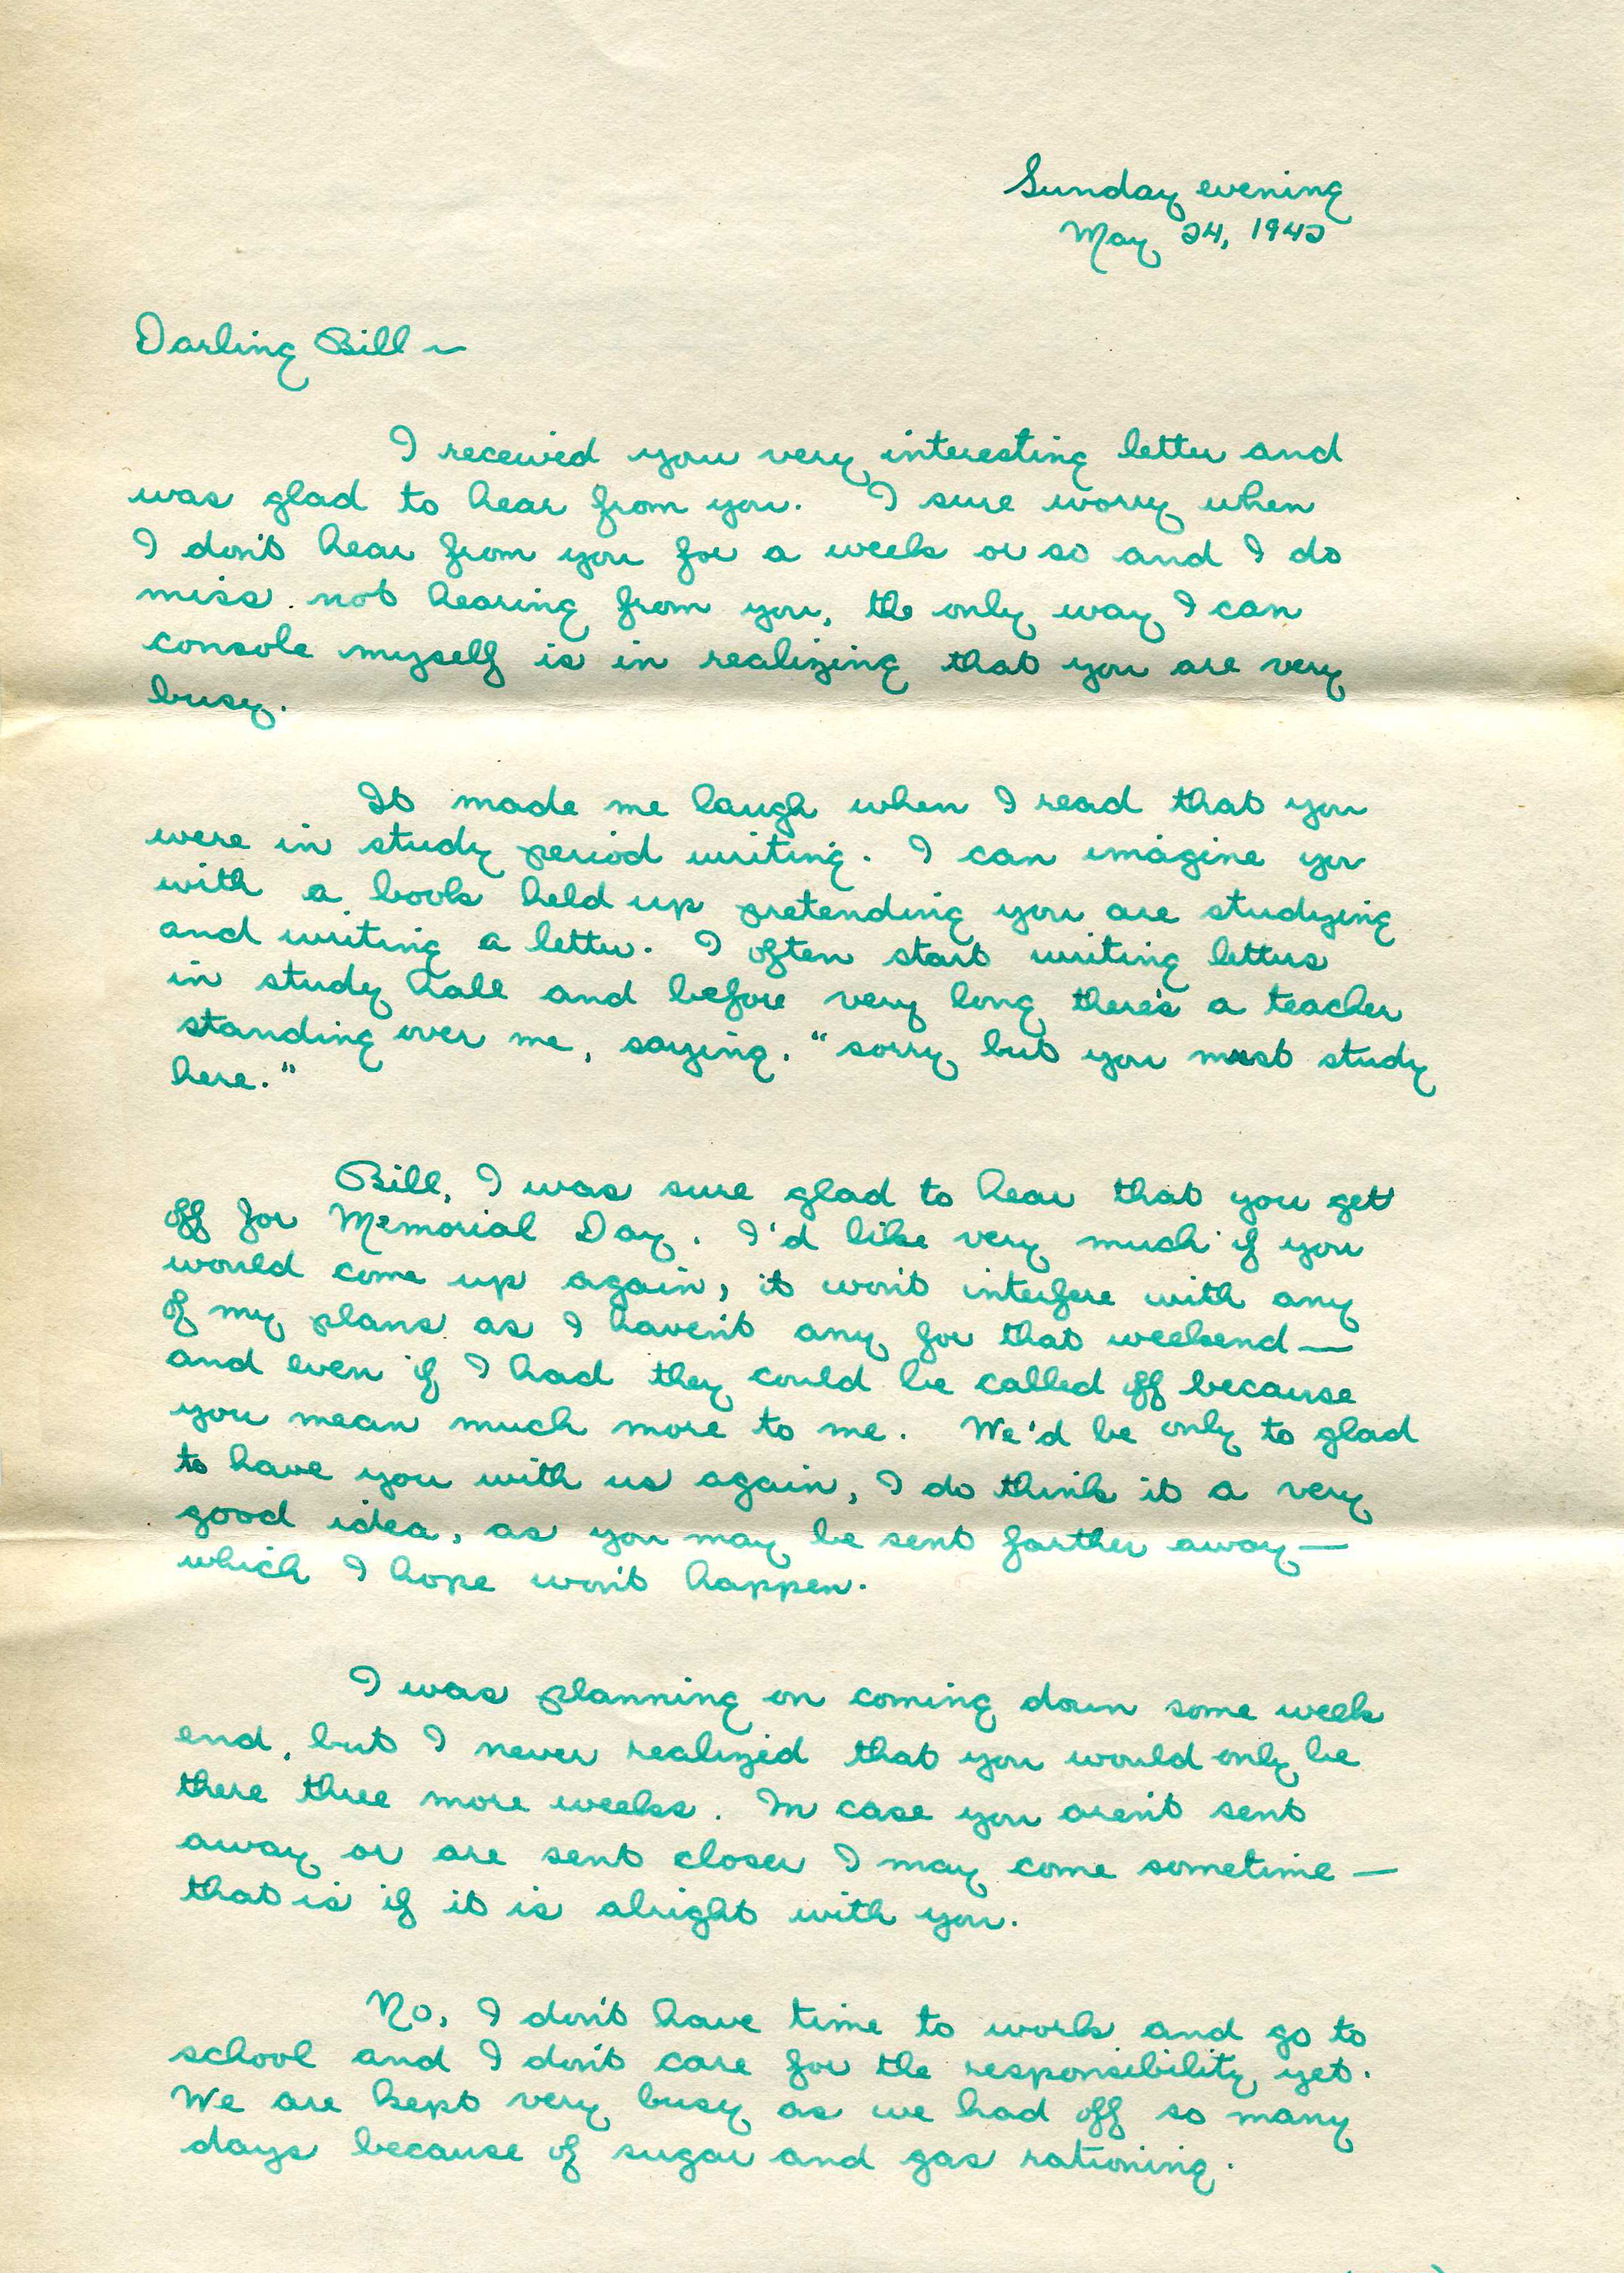 Sunday evening
May 24, 1942
Darling Bill ~
I received you very interesting letter and
was glad to hear from you. I sure worry when
I don't hear from you for a week or so and I do
miss not hearing from you, the only way I can
console myself is in realizing that you are very
busy.
It made me laugh when I read that you
were in study period writing. I can imagine you
with a book held up pretending you are studying
and writing a letter. I often start writing letters
in study hall and before very long there's a teacher
standing over me, saying, "sorry but you must study
here."
Bill, I was sure glad to hear that you get
off for Memorial Day. I'd like very much if you
would come up again, it won't interfere with any
of my plans as I haven't any for that weekend—
and even if I had they could be called off because
you mean much more to me. We'd be only to glad
to have you with us again, I do think it a very
good idea, as you may be sent farther away—
which I hope won't happen.
I was planning on coming down some week
end, but I never realized that you would only be
there three more weeks. In case you aren't sent
away or are sent closer I may come sometime —
that is if it is alright with you.
No, I don't have time to work and go to
school and I don't care for the responsibility yet.
We are kept very busy as we had off so many
days because of sugar and gas rationing.